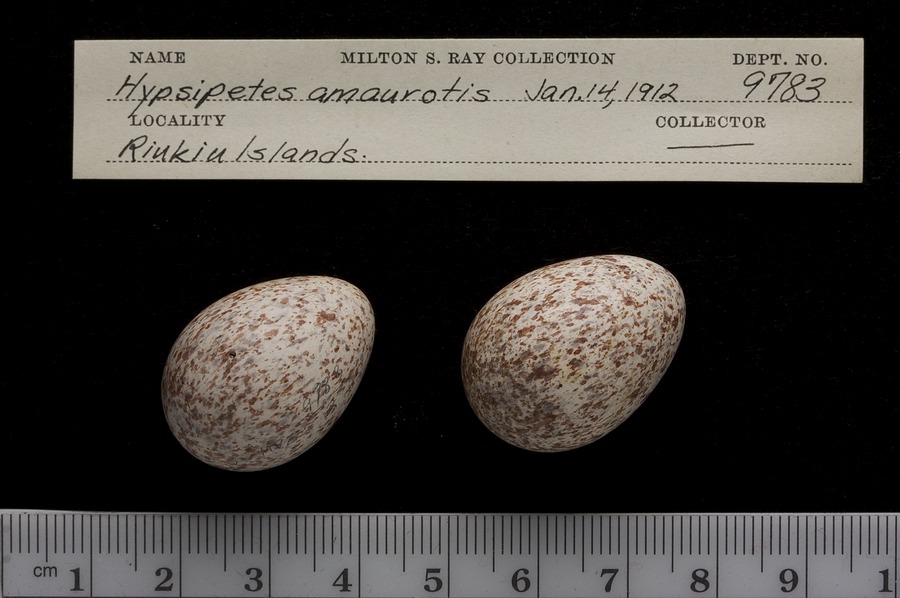 NAME MILTON S. RAY COLLECTION DEPT. NO.
Hypsipetes amaurotis Jan. 14, 1912 9783
LOCALITY COLLECTOR
Riukiu Islands.
cm 1 2 3 4 5 6 7 8 9 1